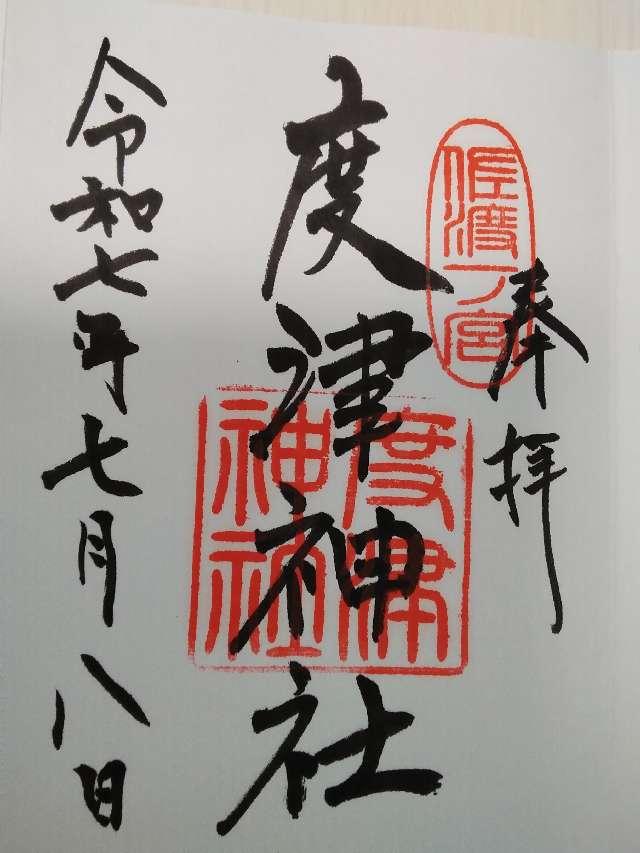 奉拝
佐渡一ノ宮
度津神社
度津神社
令和七年七月八日